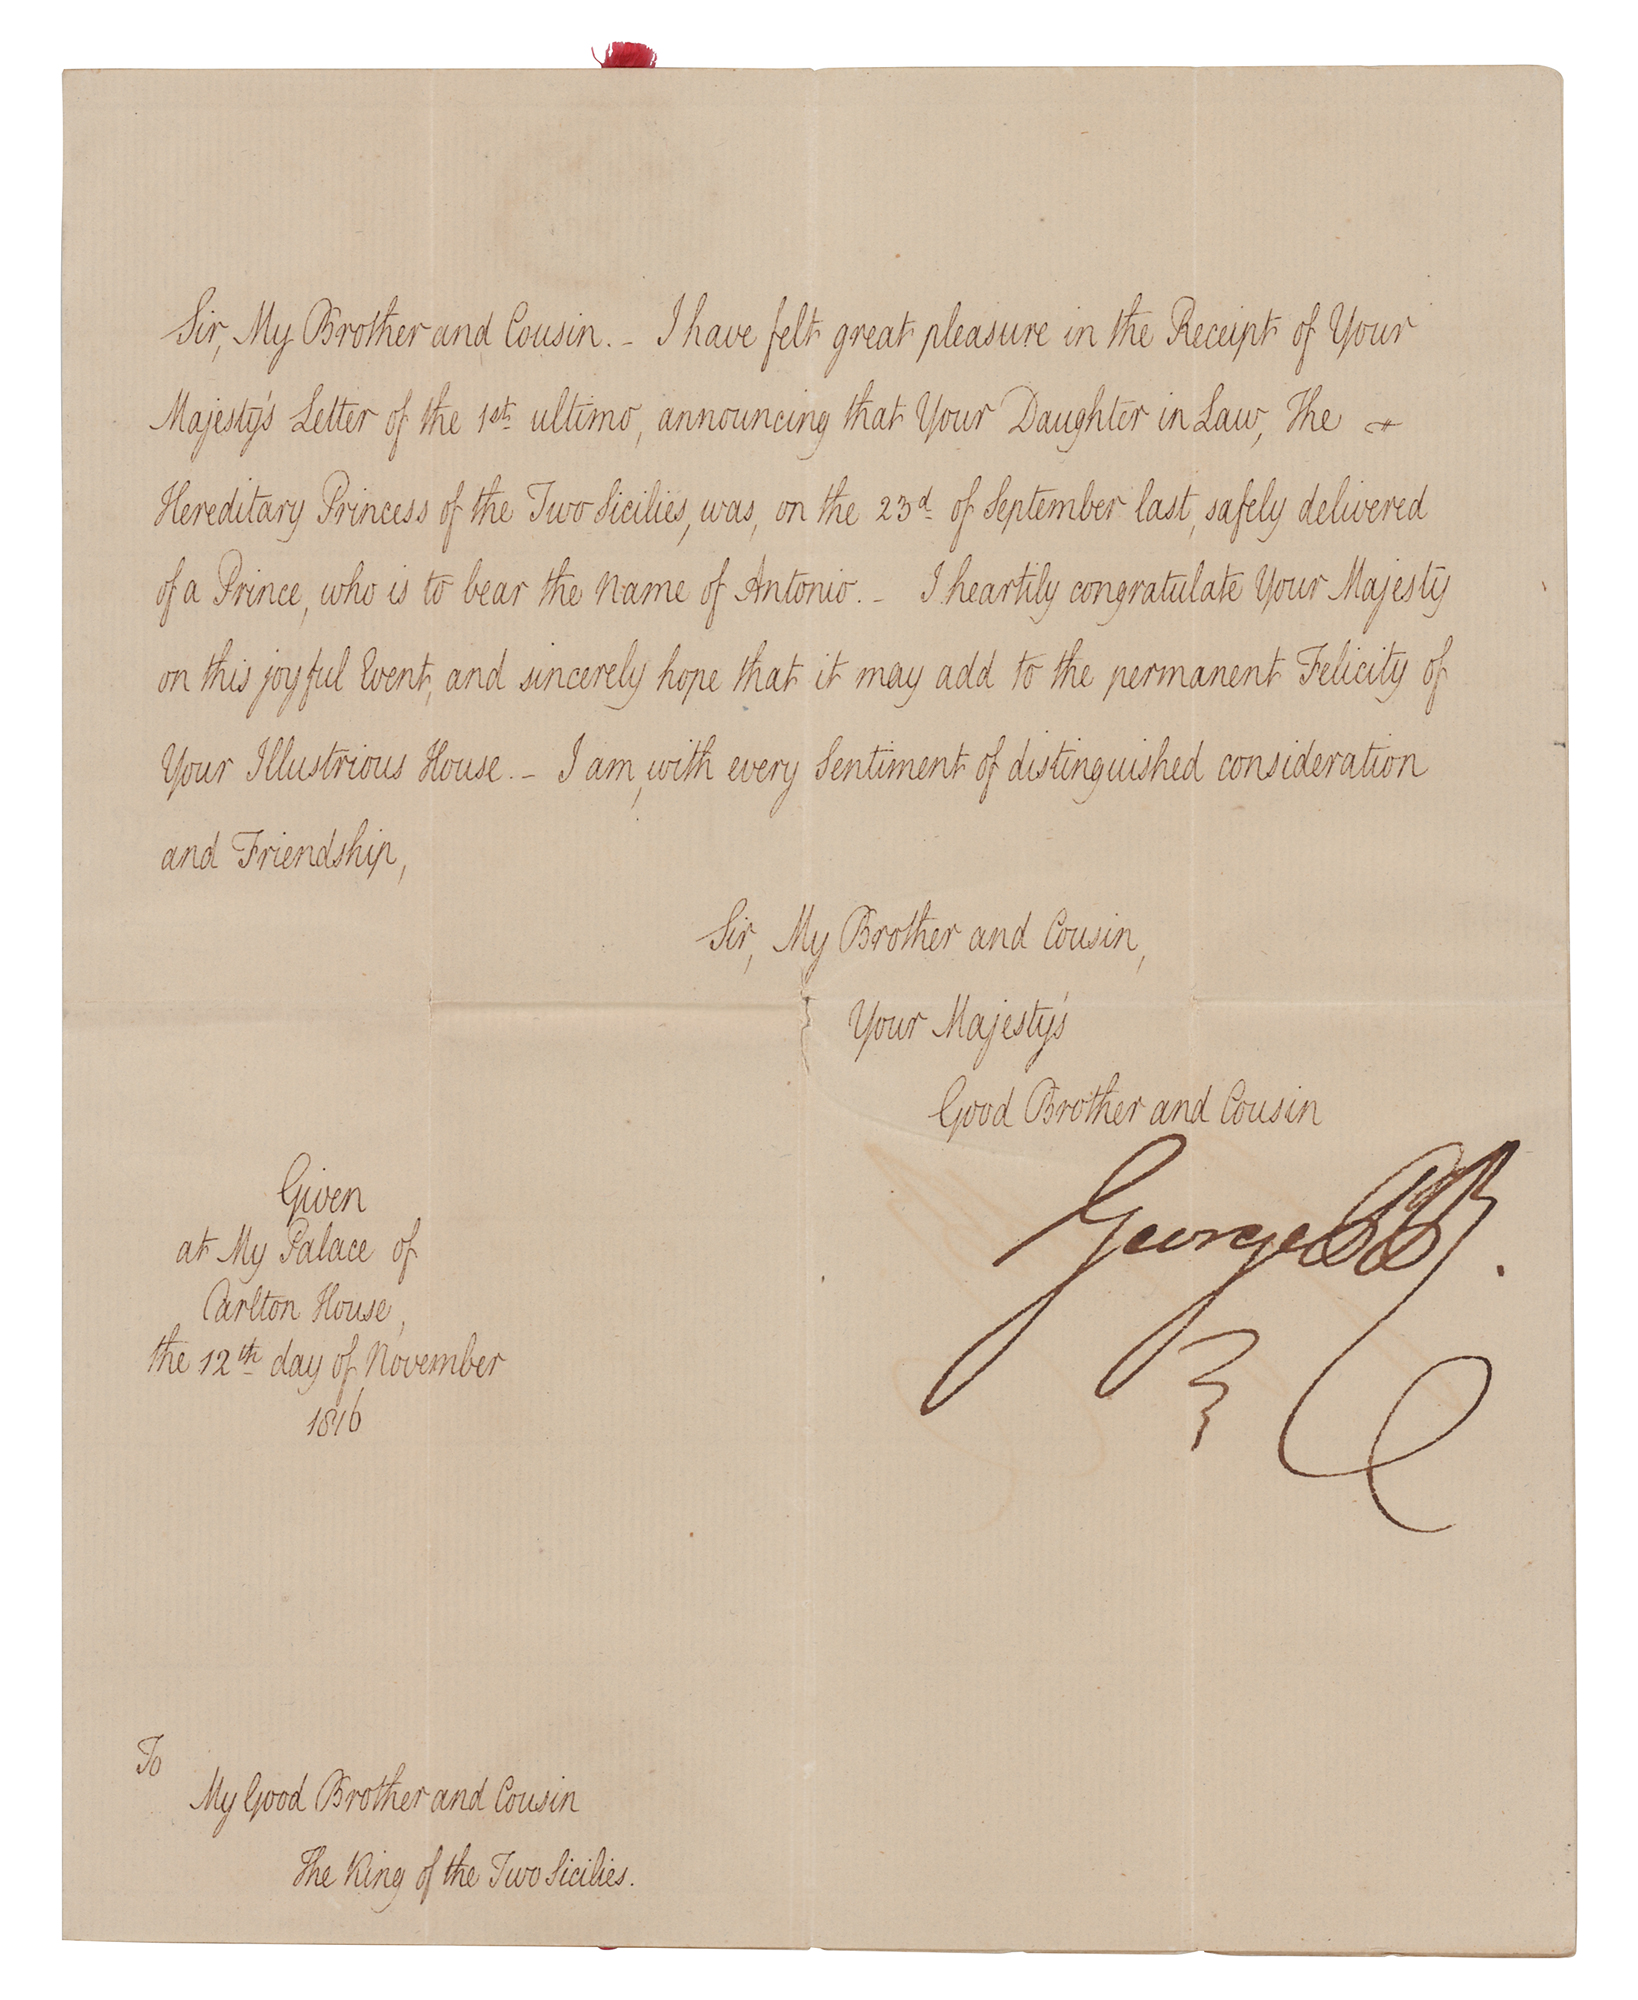 Sir, My Brother and Cousin. – I have felt great pleasure in the Receipt of Your
Majesty's Letter of the 1st ultimo, announcing that Your Daughter in Law, The
Hereditary Princess of the Two Sicilies, was, on the 23d of September last, safely delivered
of a Prince, who is to bear the Name of Antonio. – I heartily congratulate Your Majesty
on this joyful Event, and sincerely hope that it may add to the permanent Felicity of
Your Illustrious House. – I am, with every Sentiment of distinguished consideration
and Friendship,
Sir, My Brother and Cousin,
Your Majesty's
Good Brother and Cousin
George P R.
Given
at My Palace of
Carlton House,
the 12th day of November
1816
To
My Good Brother and Cousin
The King of the Two Sicilies.